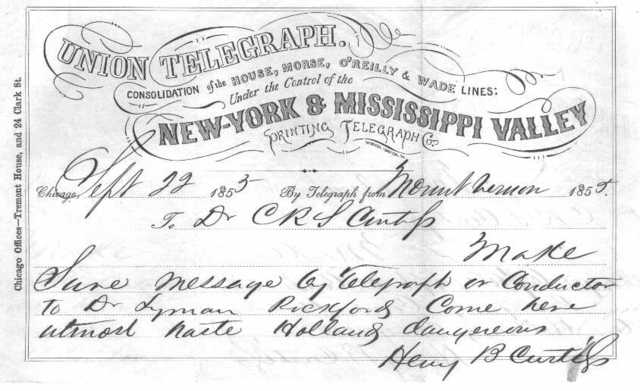 UNION TELEGRAPH.
CONSOLIDATION of the HOUSE, MORSE, O'REILLY & WADE LINES;
Under the Control of the
NEW-YORK & MISSISSIPPI VALLEY
PRINTING TELEGRAPH Co.
Chicago, Sept 22 1855 By Telegraph from Mount Vernon 1855.
To Dr C R S Curtiss
Make
Sure message by Telegraph or Conductor
to Dr Lyman Pickford Come here
utmost haste Holland dangereous
Henry B Curtiss
Chicago Offices—Tremont House, and 24 Clark St.